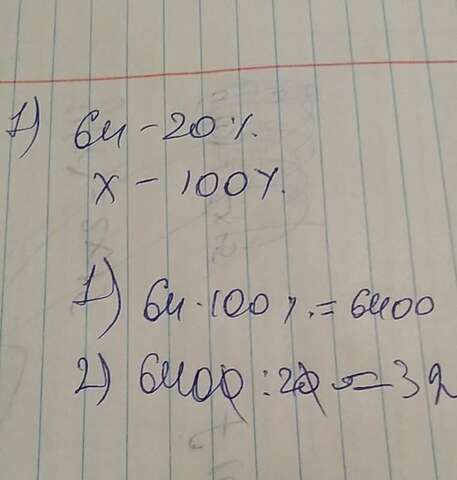 1) 64 - 20%.
x - 100%.
1) 64 · 100%. = 6400
2) 6400 : 20 = 32